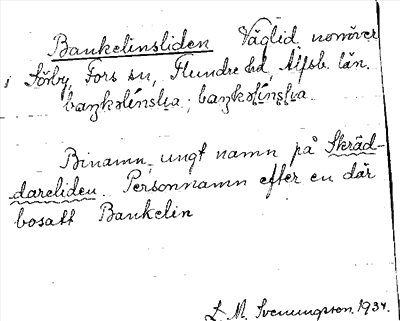 Bankelinsliden Väglid norröver
i Sörby, Fors sn, Flundre hd, Älfsb. län.
baŋkəlínslia; baŋkəlínslia.
Binamn, ungt namn på Skräd-
dareliden. Personnamn efter en där
bosatt Bankelin
L. M. Svenungsson. 1934.